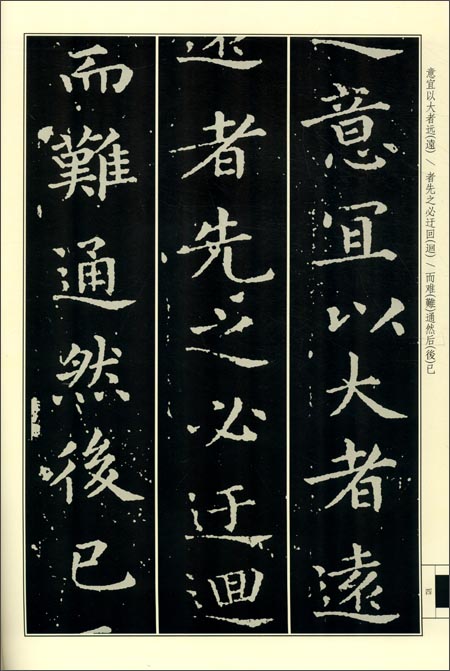 意宜以大者遠
者先之必迂迴
而難通然後已
意宜以大者远(遠) / 者先之必迂回(迴) / 而难(難)通然后(後)已
四